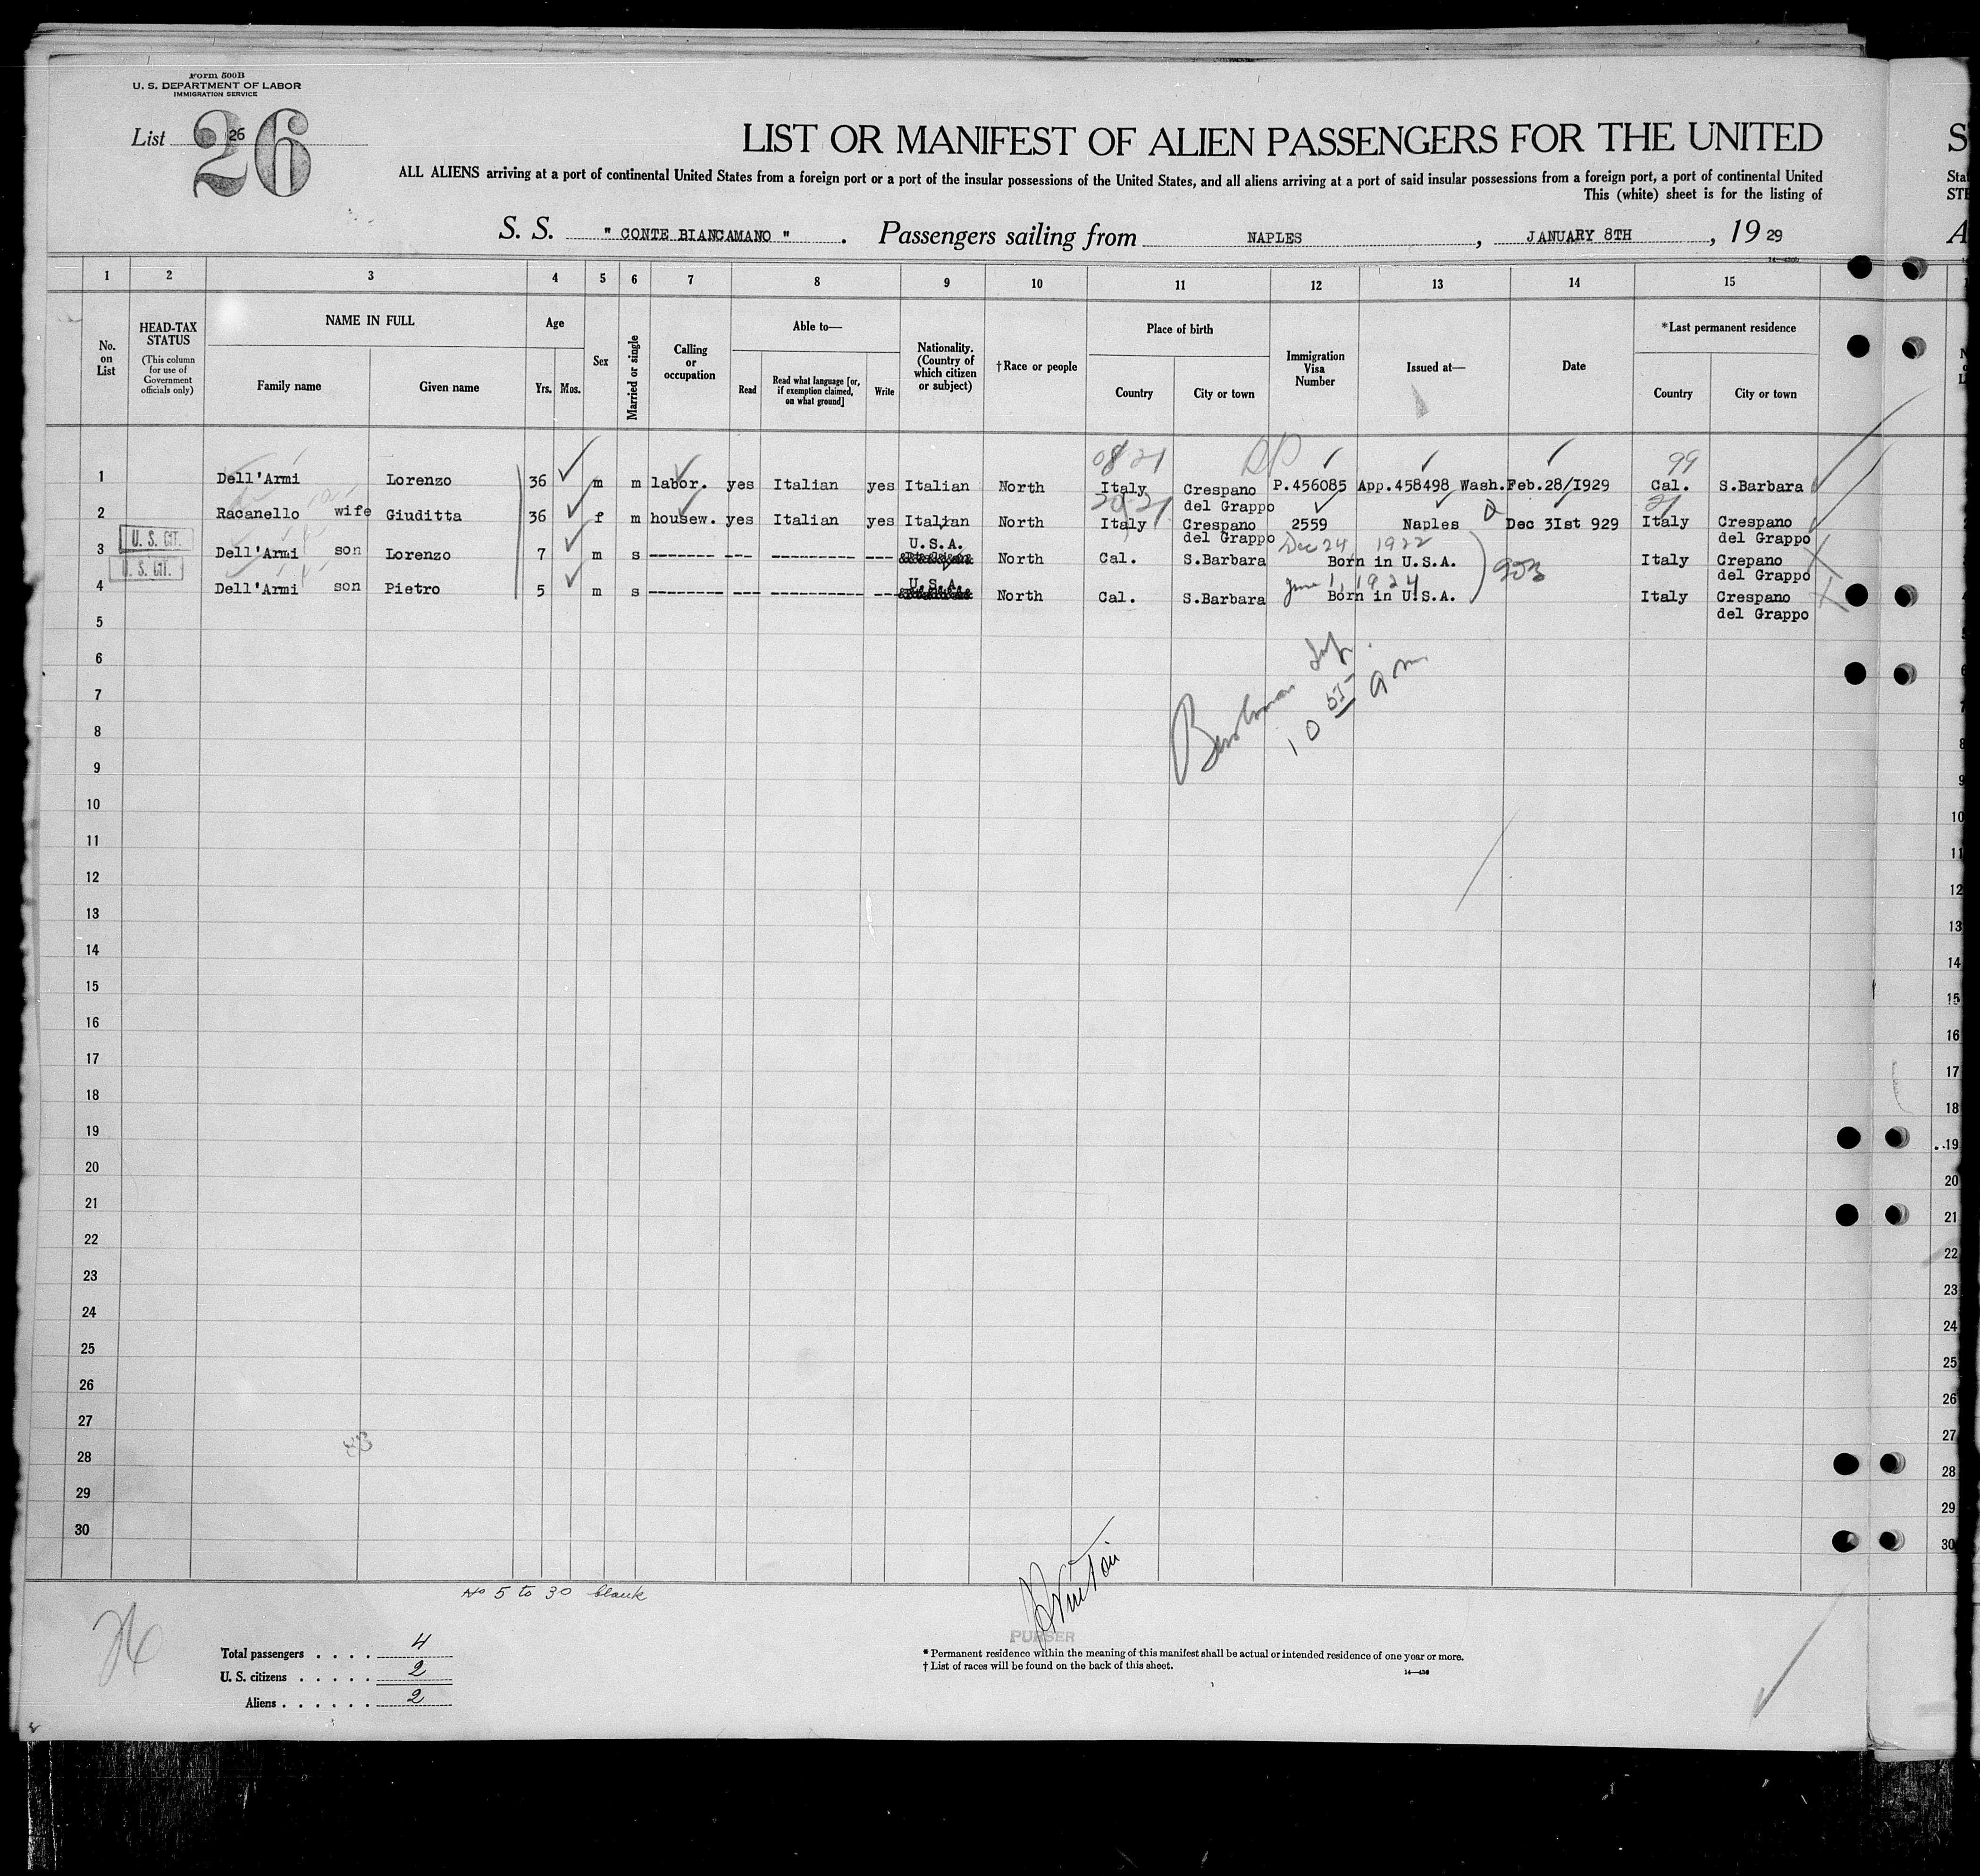 Form 500B
U. S. DEPARTMENT OF LABOR
IMMIGRATION SERVICE
List 26
26
LIST OR MANIFEST OF ALIEN PASSENGERS FOR THE UNITED
ALL ALIENS arriving at a port of continental United States from a foreign port or a port of the insular possessions of the United States, and all aliens arriving at a port of said insular possessions from a foreign port, a port of continental United
This (white) sheet is for the listing of
S. S. " CONTE BIANCAMANO " . Passengers sailing from NAPLES , JANUARY 8TH , 19 29
1 2 3 4 5 6 7 8 9 10 11 12 13 14 15
No. on List
HEAD-TAX STATUS
(This column for use of Government officials only)
NAME IN FULL
Family name Given name
Age
Yrs. Mos.
Sex
Married or single
Calling or occupation
Able to—
Read
Read what language [or, if exemption claimed, on what ground]
Write
Nationality. (Country of which citizen or subject)
†Race or people
Place of birth
Country City or town
Immigration Visa Number
Issued at—
Date
*Last permanent residence
Country City or town
08 21 99
1 Dell'Armi Lorenzo 36 m m labor. yes Italian yes Italian North Italy Crespano del Grappo P.456085 App.458498 Wash. Feb.28/1929 Cal. S.Barbara
21
2 Racanello wife Giuditta 36 f m housew. yes Italian yes Italian North Italy Crespano del Grappo 2559 Naples Dec 3Ist 929 Italy Crespano del Grappo
U. S. CIT.
Dec 24 1922
3 Dell'Armi son Lorenzo 7 m s -------- --- ---------- --- U.S.A. North Cal. S.Barbara Born in U.S.A. Italy Crepano del Grappo
903
U. S. CIT.
June 1, 1924
4 Dell'Armi son Pietro 5 m s -------- --- ---------- --- U.S.A. North Cal. S.Barbara Born in U.S.A. Italy Crespano del Grappo
5
6
7
10 55 am
8
9
10
11
12
13
14
15
16
17
18
19
20
21
22
23
24
25
26
27
28
29
30
No 5 to 30 blank
26
PURSER
Total passengers . . . . 4
U. S. citizens . . . . . 2
Aliens . . . . . . 2
* Permanent residence within the meaning of this manifest shall be actual or intended residence of one year or more.
† List of races will be found on the back of this sheet.